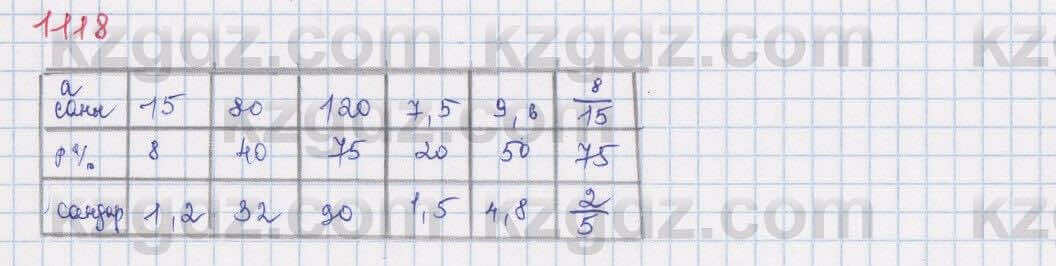 1118
а саны 15 80 120 7,5 9,6 8/15
р % 8 40 75 20 50 75
сандар 1,2 32 90 1,5 4,8 2/5
kzgdz.com kzgdz.com kz
kzgdz.com kzgdz.com
kzgdz.com kzgdz.com kz